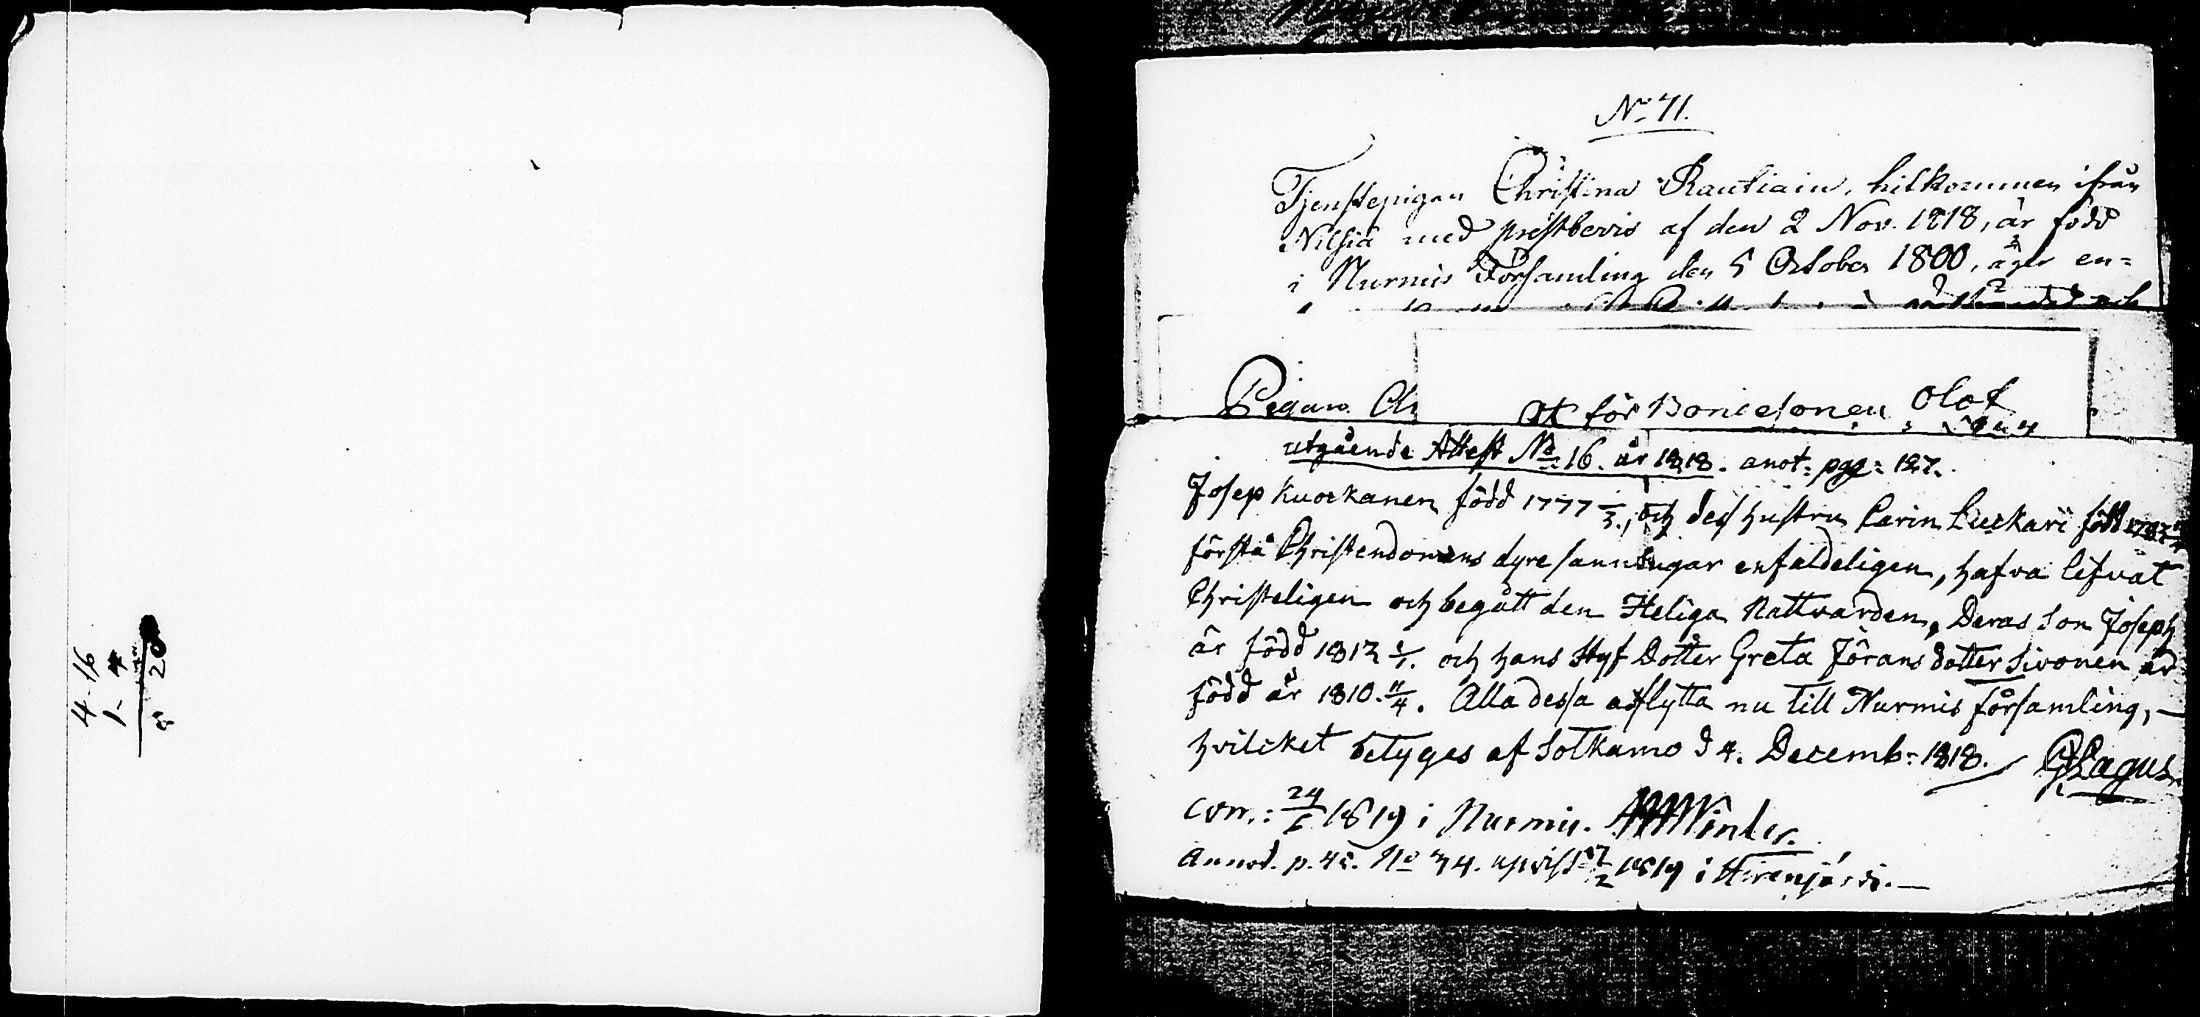 4-16
1-4
8 20
No 71.
Tjenstepigan Christina Rautiain, hitkommen ifrån
Nilsiä med prestbevis af den 2 Nov. 1818, är född
i Nurmis Församling den 5 October 1800, äger en=
Pigan Ch
för Bondesonen Olof
utgående Attest No 16. år 1818. anot: pag: 127.
Josep Kuockanen född 1777 och des hustru Carin Luckari född
förstå Christendomens dyre sanningar enfaldeligen, hafva lefvat
Christeligen och begått den Heliga Nattvarden, Deras Son Joseph
är född 1812 1/1. och hans Styf Dotter Greta Jörans dotter Sivonen är
född år 1810. 11/4. Alla dessa afflytta nu till Nurmis församling, —
hvilcket betyges af Sotkamo d 4. Decemb: 1818. Lagus
24 1819 i Nurmis. Winter.
Annot. p. 45. No 34. upvist 17/2 1819 i Hirenjärvi. —